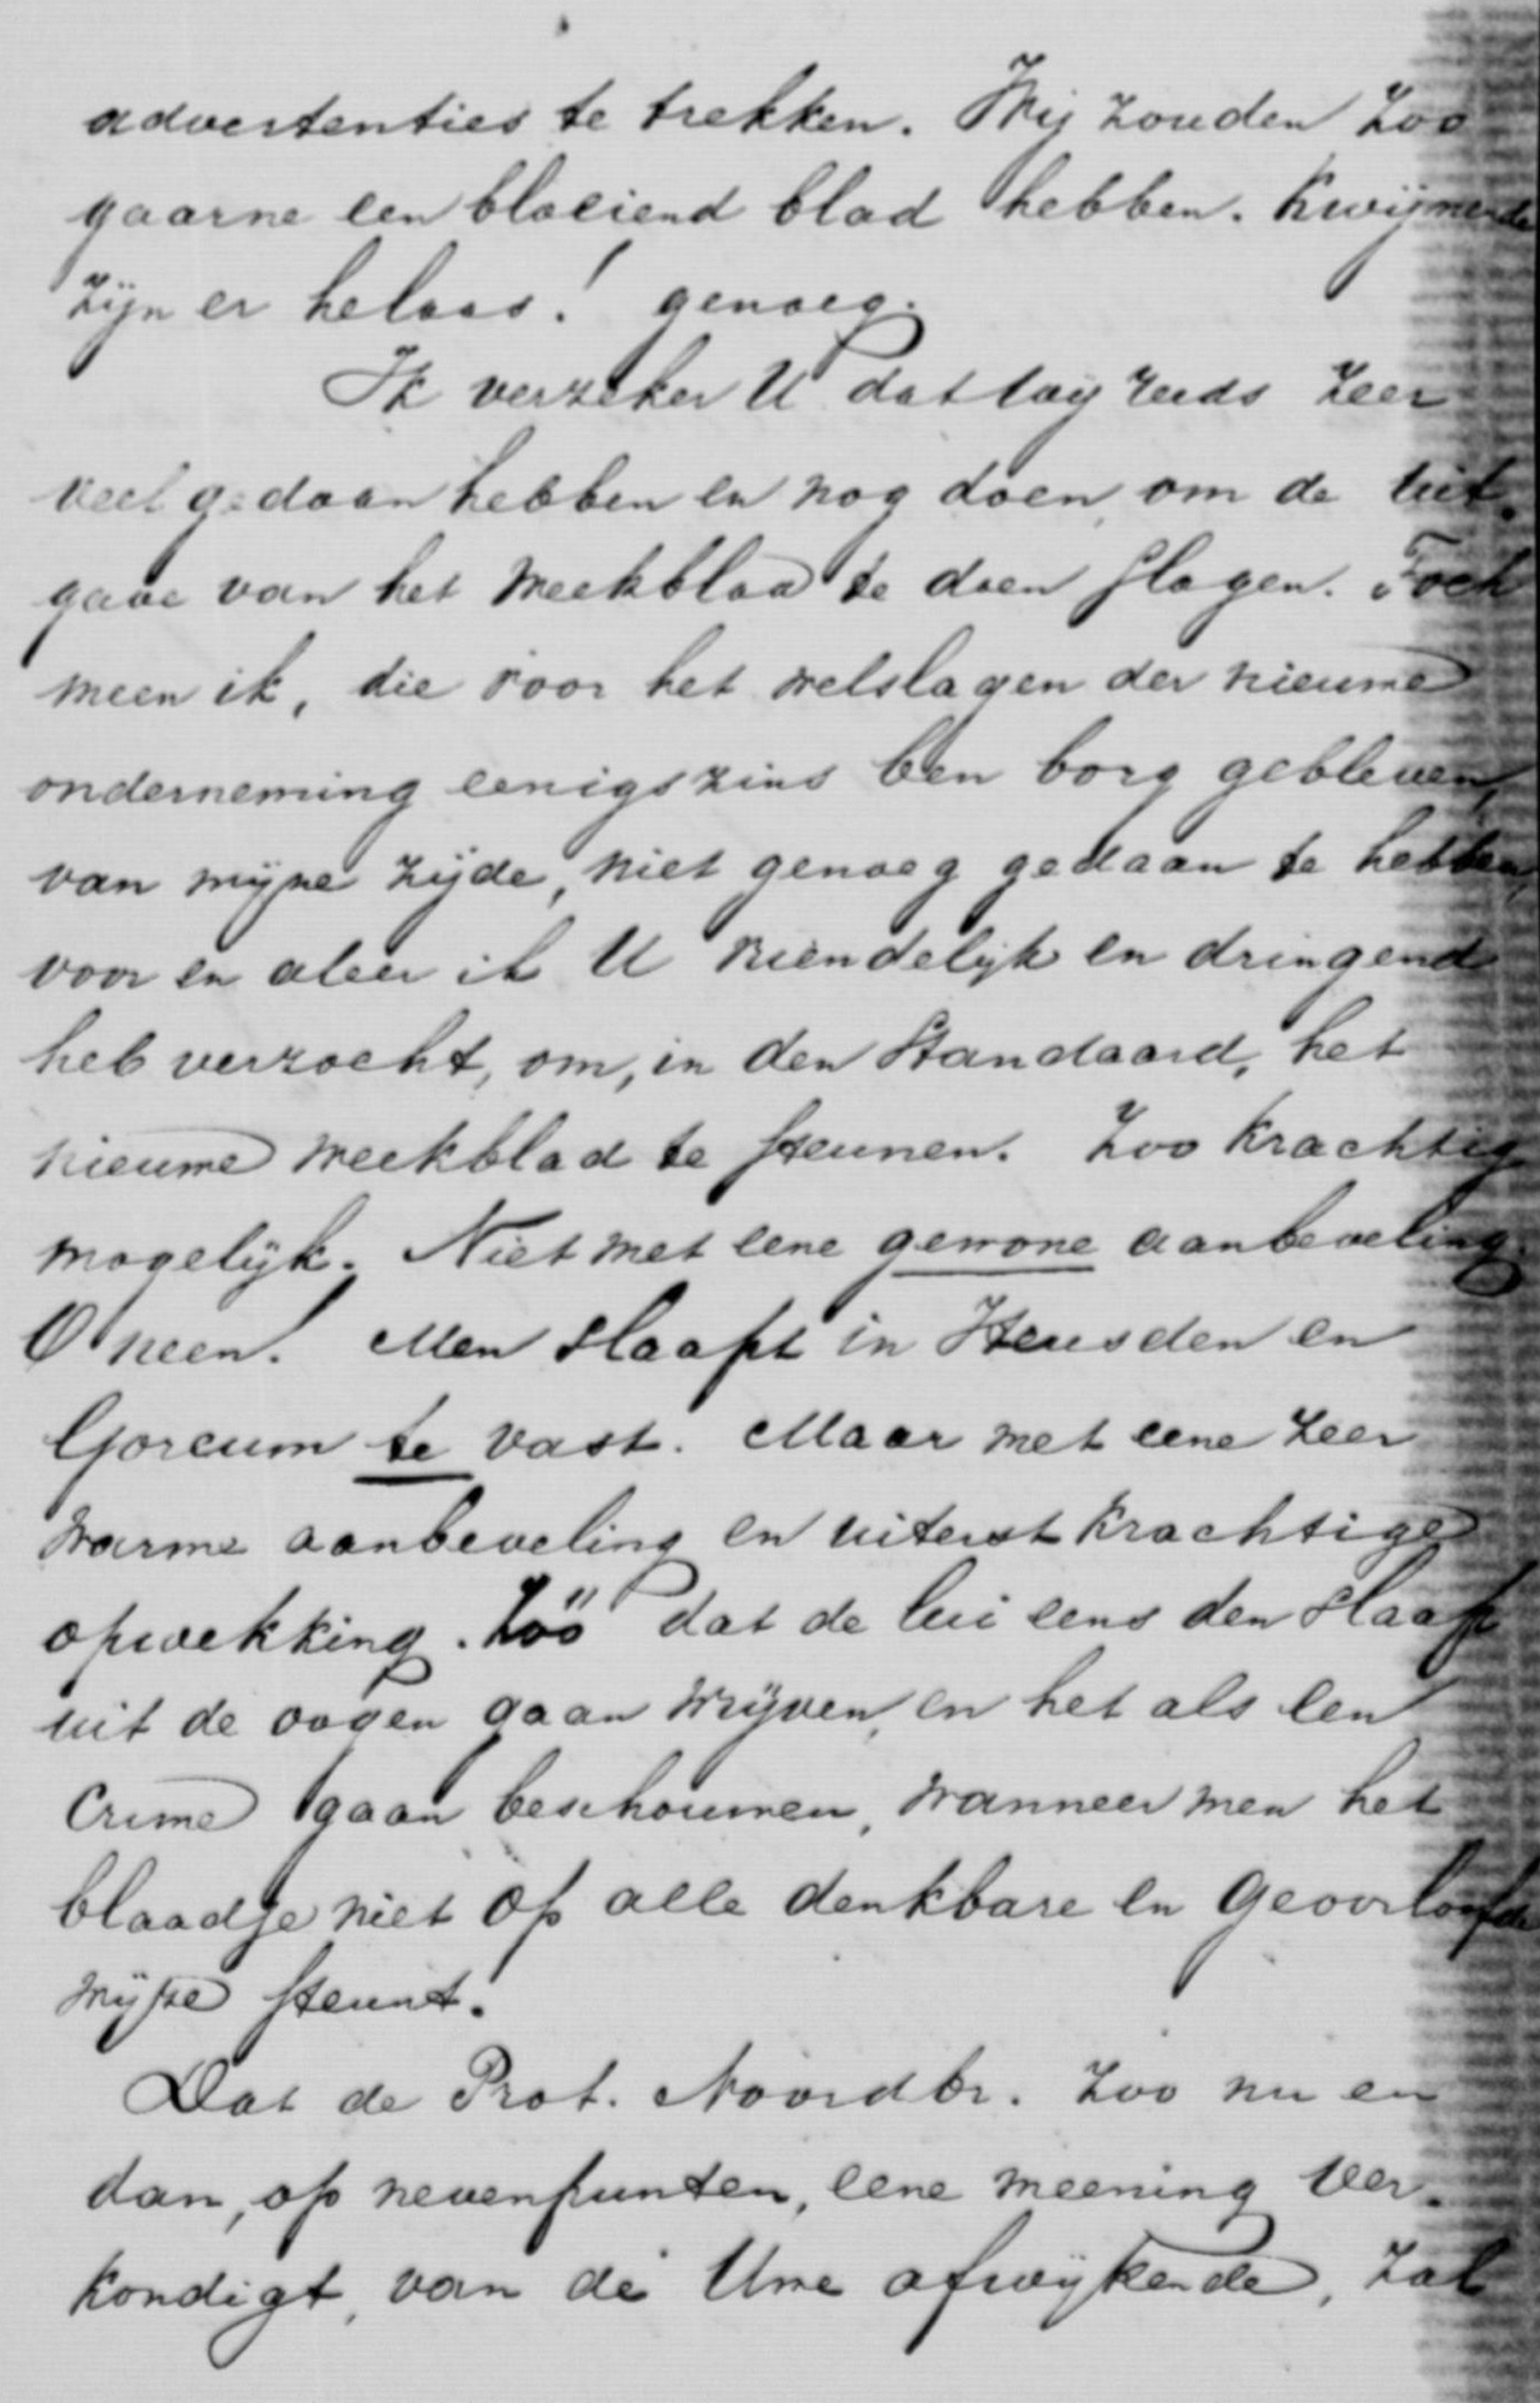 advertenties te trekken. Wij zouden zoo
gaarne een bloeiend blad hebben. Kwijnende
zijn er helaas! genoeg.
Ik verzeker U dat wij reeds zeer
veel gedaan hebben en nog doen, om de uit-
gave van het weekblad te doen slagen. Toch
meen ik, die voor het welslagen der nieuwe
onderneming eenigszins ben borg gebleven,
van mijne zijde, niet genoeg gedaan te hebben,
voor en aleer ik U vriendelijk en dringend
heb verzocht, om, in den Standaard, het
nieuwe weekblad te steunen. Zoo krachtig
mogelijk. Niet met eene gewone aanbeveling.
O neen! Men slaapt in Heusden en
Gorcum te vast. Maar met eene zeer
warme aanbeveling en uiterst krachtige
opwekking. Zóó dat de lui eens den slaap
uit de oogen gaan wrijven, en het als een
crime gaan beschouwen, wanneer men het
blaadje niet op alle denkbare en geoorloofde
wijze steunt.
Dat de Prot. Noordbr. zoo nu en
dan, op nevenpunten, eene meening ver-
kondigt, van de Uwe afwijkende, zal